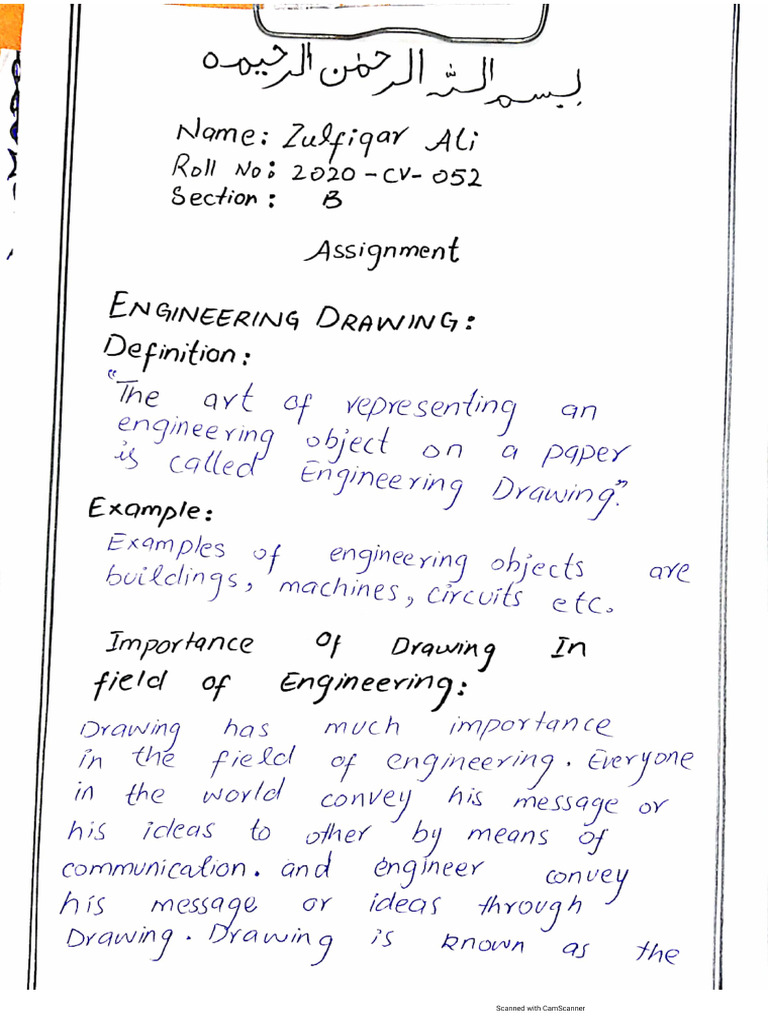 بسم الله الرحمن الرحيم
Name: Zulfiqar Ali
Roll No: 2020-CV-052
Section: B
Assignment
ENGINEERING DRAWING:
Definition:
"The art of representing an
engineering object on a paper
is called Engineering Drawing".
Example:
Examples of engineering objects are
buildings, machines, circuits etc.
Importance Of Drawing In
field of Engineering:
Drawing has much importance
in the field of engineering. Everyone
in the world convey his message or
his ideas to other by means of
communication. and engineer convey
his message or ideas through
Drawing. Drawing is known as the
Scanned with CamScanner